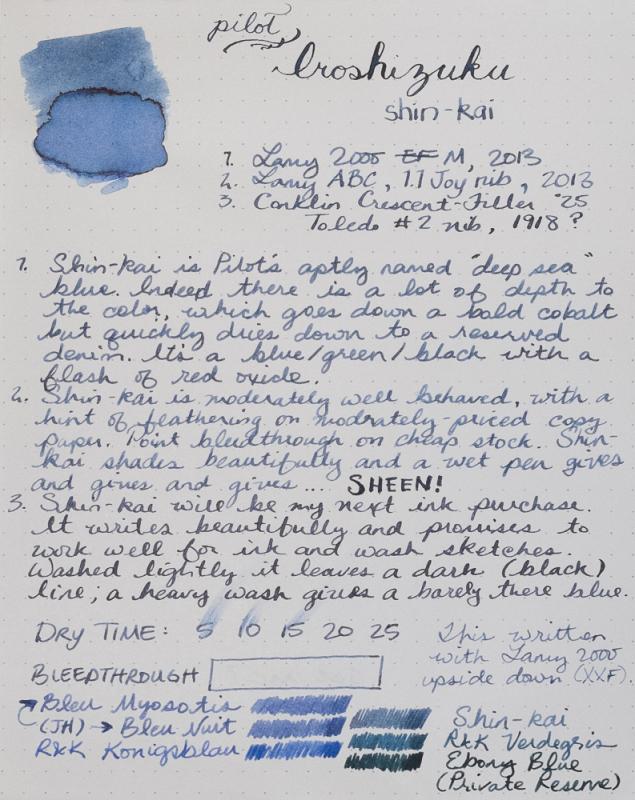 pilot
Iroshizuku
shin-kai
1. Lamy 2000 EF M, 2013
2. Lamy ABC, 1.1 Joy nib, 2013
3. Conklin Crescent-Filler '25
Toledo #2 nib, 1918?
1. Shin-kai is Pilot's aptly named "deep sea"
blue. Indeed there is a lot of depth to
the color, which goes down a bold cobalt
but quickly dries down to a reserved
denim. It's a blue/green/black with a
flash of red oxide.
2. Shin-kai is moderately well behaved, with a
hint of feathering on modrately-priced copy
paper. Point bleedthrough on cheap stock. Shin-
kai shades beautifully and a wet pen gives
and gives and gives... SHEEN!
3. Shin-kai will be my next ink purchase.
It writes beautifully and promises to
work well for ink and wash sketches.
Washed lightly it leaves a dark (black)
line; a heavy wash gives a barely there blue.
DRY TIME: 5 10 15 20 25
This written
with Lamy 2000
upside down (XXF).
BLEEDTHROUGH
Bleu Myosotis
(JH) → Bleu Nuit
R&K Konigsblau
Shin-kai
R&K Verdegris
Ebony Blue
(Private Reserve)